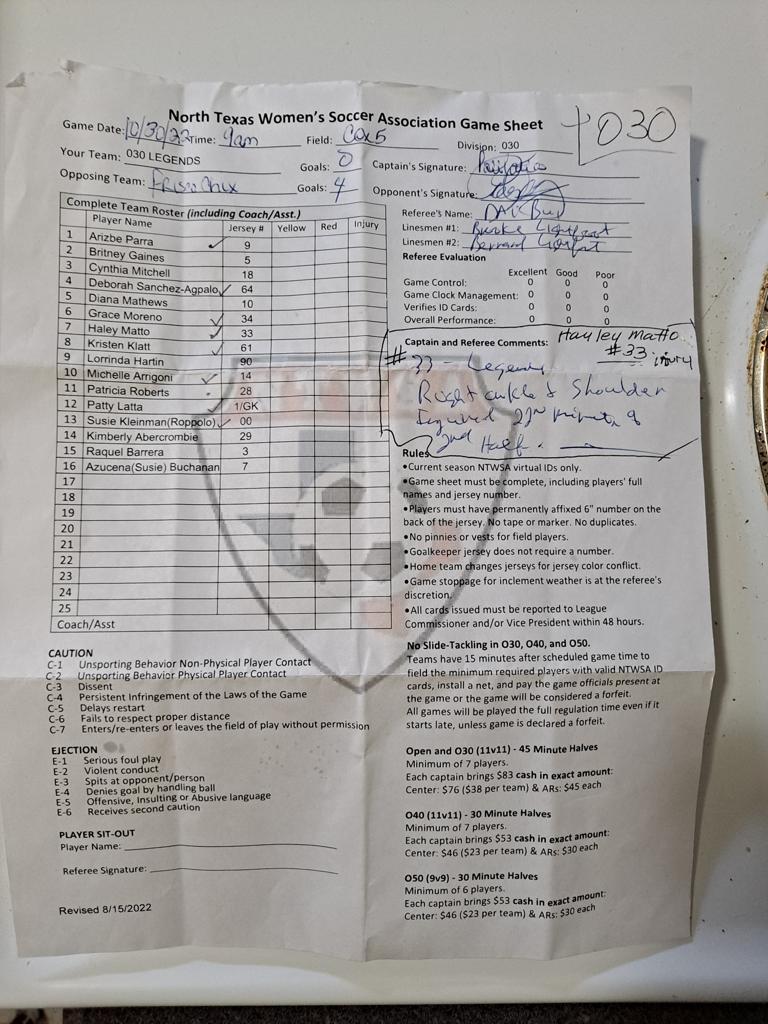 North Texas Women's Soccer Association Game Sheet
O30
Game Date: 10/30/22 Time: 9am Field: Cox 5 Division: O30
Your Team: O30 LEGENDS Goals: 0 Captain's Signature:
Opposing Team: Frisco Chix Goals: 4 Opponent's Signature:
Complete Team Roster (including Coach/Asst.)
Player Name Jersey # Yellow Red Injury
1 Arizbe Parra ✓ 9
2 Britney Gaines 5
3 Cynthia Mitchell 18
4 Deborah Sanchez-Agpalo ✓ 64
5 Diana Mathews 10
6 Grace Moreno ✓ 34
7 Haley Matto ✓ 33
8 Kristen Klatt ✓ 61
9 Lorrinda Hartin 90
10 Michelle Arrigoni ✓ 14
11 Patricia Roberts 28
12 Patty Latta 1/GK
13 Susie Kleinman(Roppolo) ✓ 00
14 Kimberly Abercrombie 29
15 Raquel Barrera 3
16 Azucena(Susie) Buchanan 7
17
18
19
20
21
22
23
24
25
Coach/Asst
Referee's Name:
Linesmen #1: Burke Lightfoot
Linesmen #2: Bernard
Referee Evaluation
Excellent Good Poor
Game Control: 0 0 0
Game Clock Management: 0 0 0
Verifies ID Cards: 0 0 0
Overall Performance: 0 0 0
Captain and Referee Comments: Hayley Matto
#33 injury
#33 - Legends
Right ankle & Shoulder
2nd Half.
Rules
•Current season NTWSA virtual IDs only.
•Game sheet must be complete, including players' full
names and jersey number.
•Players must have permanently affixed 6" number on the
back of the jersey. No tape or marker. No duplicates.
•No pinnies or vests for field players.
•Goalkeeper jersey does not require a number.
•Home team changes jerseys for jersey color conflict.
•Game stoppage for inclement weather is at the referee's
discretion.
•All cards issued must be reported to League
Commissioner and/or Vice President within 48 hours.
No Slide-Tackling in O30, O40, and O50.
Teams have 15 minutes after scheduled game time to
field the minimum required players with valid NTWSA ID
cards, install a net, and pay the game officials present at
the game or the game will be considered a forfeit.
All games will be played the full regulation time even if it
starts late, unless game is declared a forfeit.
Open and O30 (11v11) - 45 Minute Halves
Minimum of 7 players.
Each captain brings $83 cash in exact amount:
Center: $76 ($38 per team) & ARs: $45 each
O40 (11v11) - 30 Minute Halves
Minimum of 7 players.
Each captain brings $53 cash in exact amount:
Center: $46 ($23 per team) & ARs: $30 each
O50 (9v9) - 30 Minute Halves
Minimum of 6 players.
Each captain brings $53 cash in exact amount:
Center: $46 ($23 per team) & ARs: $30 each
CAUTION
C-1 Unsporting Behavior Non-Physical Player Contact
C-2 Unsporting Behavior Physical Player Contact
C-3 Dissent
C-4 Persistent Infringement of the Laws of the Game
C-5 Delays restart
C-6 Fails to respect proper distance
C-7 Enters/re-enters or leaves the field of play without permission
EJECTION
E-1 Serious foul play
E-2 Violent conduct
E-3 Spits at opponent/person
E-4 Denies goal by handling ball
E-5 Offensive, Insulting or Abusive language
E-6 Receives second caution
PLAYER SIT-OUT
Player Name:
Referee Signature:
Revised 8/15/2022